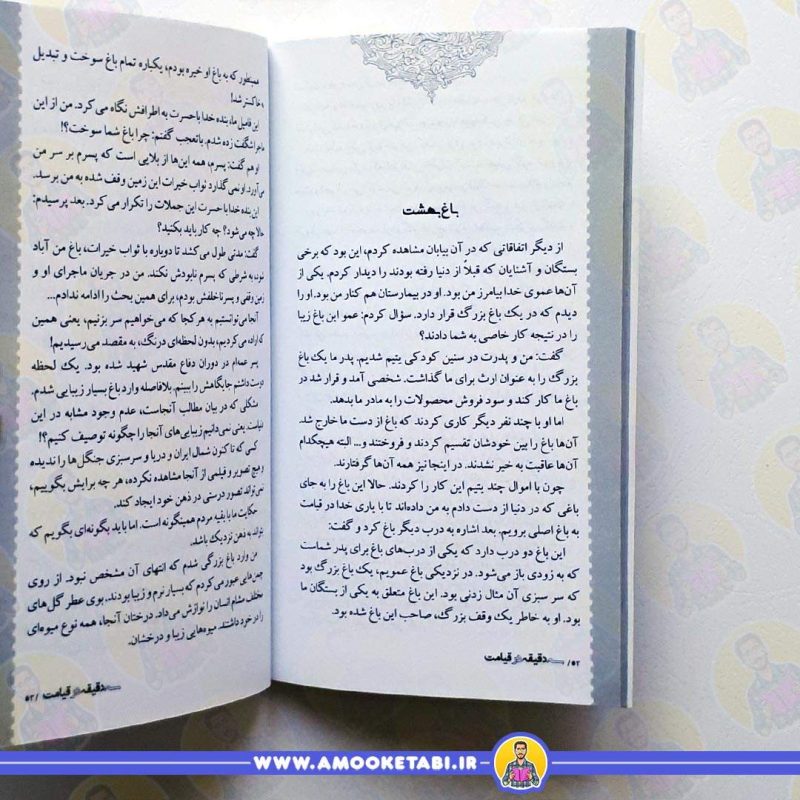 باغ بهشت
از دیگر اتفاقاتی که در آن بیابان مشاهده کردم، این بود که برخی
بستگان و آشنایان که قبلاً از دنیا رفته بودند را دیدار کردم. یکی از
آن‌ها عموی خدا بیامرز من بود. او در بیمارستان هم کنار من بود. او را
دیدم که در یک باغ بزرگ قرار دارد. سؤال کردم: عمو این باغ زیبا
را در نتیجه کار خاصی به شما دادند؟
گفت: من و پدرت در سنین کودکی یتیم شدیم. پدر ما یک باغ
بزرگ را به عنوان ارث برای ما گذاشت. شخصی آمد و قرار شد در
باغ ما کار کند و سود فروش محصولات را به مادر ما بدهد.
اما او با چند نفر دیگر کاری کردند که باغ از دست ما خارج شد.
آن‌ها باغ را بین خودشان تقسیم کردند و فروختند و... البته هیچکدام
آن‌ها عاقبت به خیر نشدند. در اینجا نیز همه آن‌ها گرفتارند.
چون با اموال چند یتیم این کار را کردند. حالا این باغ را به جای
باغی که در دنیا از دست دادم به من داده‌اند تا با یاری خدا در قیامت
به باغ اصلی برویم. بعد اشاره به درب دیگر باغ کرد و گفت:
این باغ دو درب دارد که یکی از درب‌های باغ برای پدر شماست
که به زودی باز می‌شود. در نزدیکی باغ عمویم، یک باغ بزرگ بود
که سر سبزی آن مثال زدنی بود. این باغ متعلق به یکی از بستگان ما
بود. او به خاطر یک وقف بزرگ، صاحب این باغ شده بود.
۵۲/ سه دقیقه در قیامت
همینطور که به باغ او خیره بودم، یکباره تمام باغ سوخت و تبدیل
خاکستر شد!
این فامیل ما، بنده خدا با حسرت به اطرافش نگاه می‌کرد. من از این
ماجرا شگفت زده شدم. با تعجب گفتم: چرا باغ شما سوخت؟!
او هم گفت: پسرم، همه این‌ها از بلایی است که پسرم بر سر من
می‌آورد. او نمی گذارد ثواب خیرات این زمین وقف شده به من برسد.
این بنده خدا با حسرت این جملات را تکرار می کرد. بعد پرسیدم:
حالا چه می‌شود؟ چه کار باید بکنید؟
گفت: مدتی طول می‌کشد تا دوباره با ثواب خیرات، باغ من آباد
شود، به شرطی که پسرم نابودش نکند. من در جریان ماجرای او و
زمین وقفی و پسر ناخلفش بودم، برای همین بحث را ادامه ندادم...
آنجا می‌توانستیم به هر کجا که می‌خواهیم سر بزنیم، یعنی همین
که اراده می‌کردیم، بدون لحظه‌ای درنگ، به مقصد می‌رسیدیم!
پسر عمه‌ام در دوران دفاع مقدس شهید شده بود. یک لحظه
دوست داشتم جایگاهش را ببینم. بلافاصله وارد باغ بسیار زیبایی شدم.
مشکلی که در بیان مطالب آنجاست، عدم وجود مشابه در این
دنیاست. یعنی نمی‌دانیم زیبایی های آنجا را چگونه توصیف کنیم؟!
کسی که تا کنون شمال ایران و دریا و سرسبزی جنگل‌ها را ندیده
و هیچ تصویر و فیلمی از آنجا مشاهده نکرده، هر چه برایش بگوییم،
نمی‌تواند تصور درستی در ذهن خود ایجاد کند.
حکایت ما با بقیه مردم همینگونه است. اما باید بگونه‌ای بگویم که
بتواند به ذهن نزدیک باشد.
من وارد باغ بزرگی شدم که انتهای آن مشخص نبود. از روی
چمن‌هایی عبور می‌کردم که بسیار نرم و زیبا بودند. بوی عطر گل‌های
مختلف مشام انسان را نوازش می‌داد. درختان آنجا، همه نوع میوه‌ای
را در خود داشتند. میوه‌هایی زیبا و درخشان.
سه دقیقه در قیامت / ۵۳
WWW.AMOOKETABI.IR